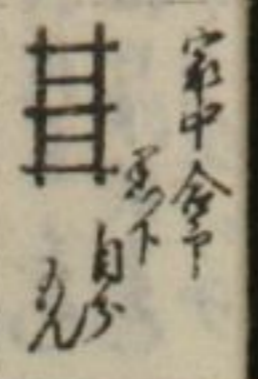 家中合印
黒下
自分
もん